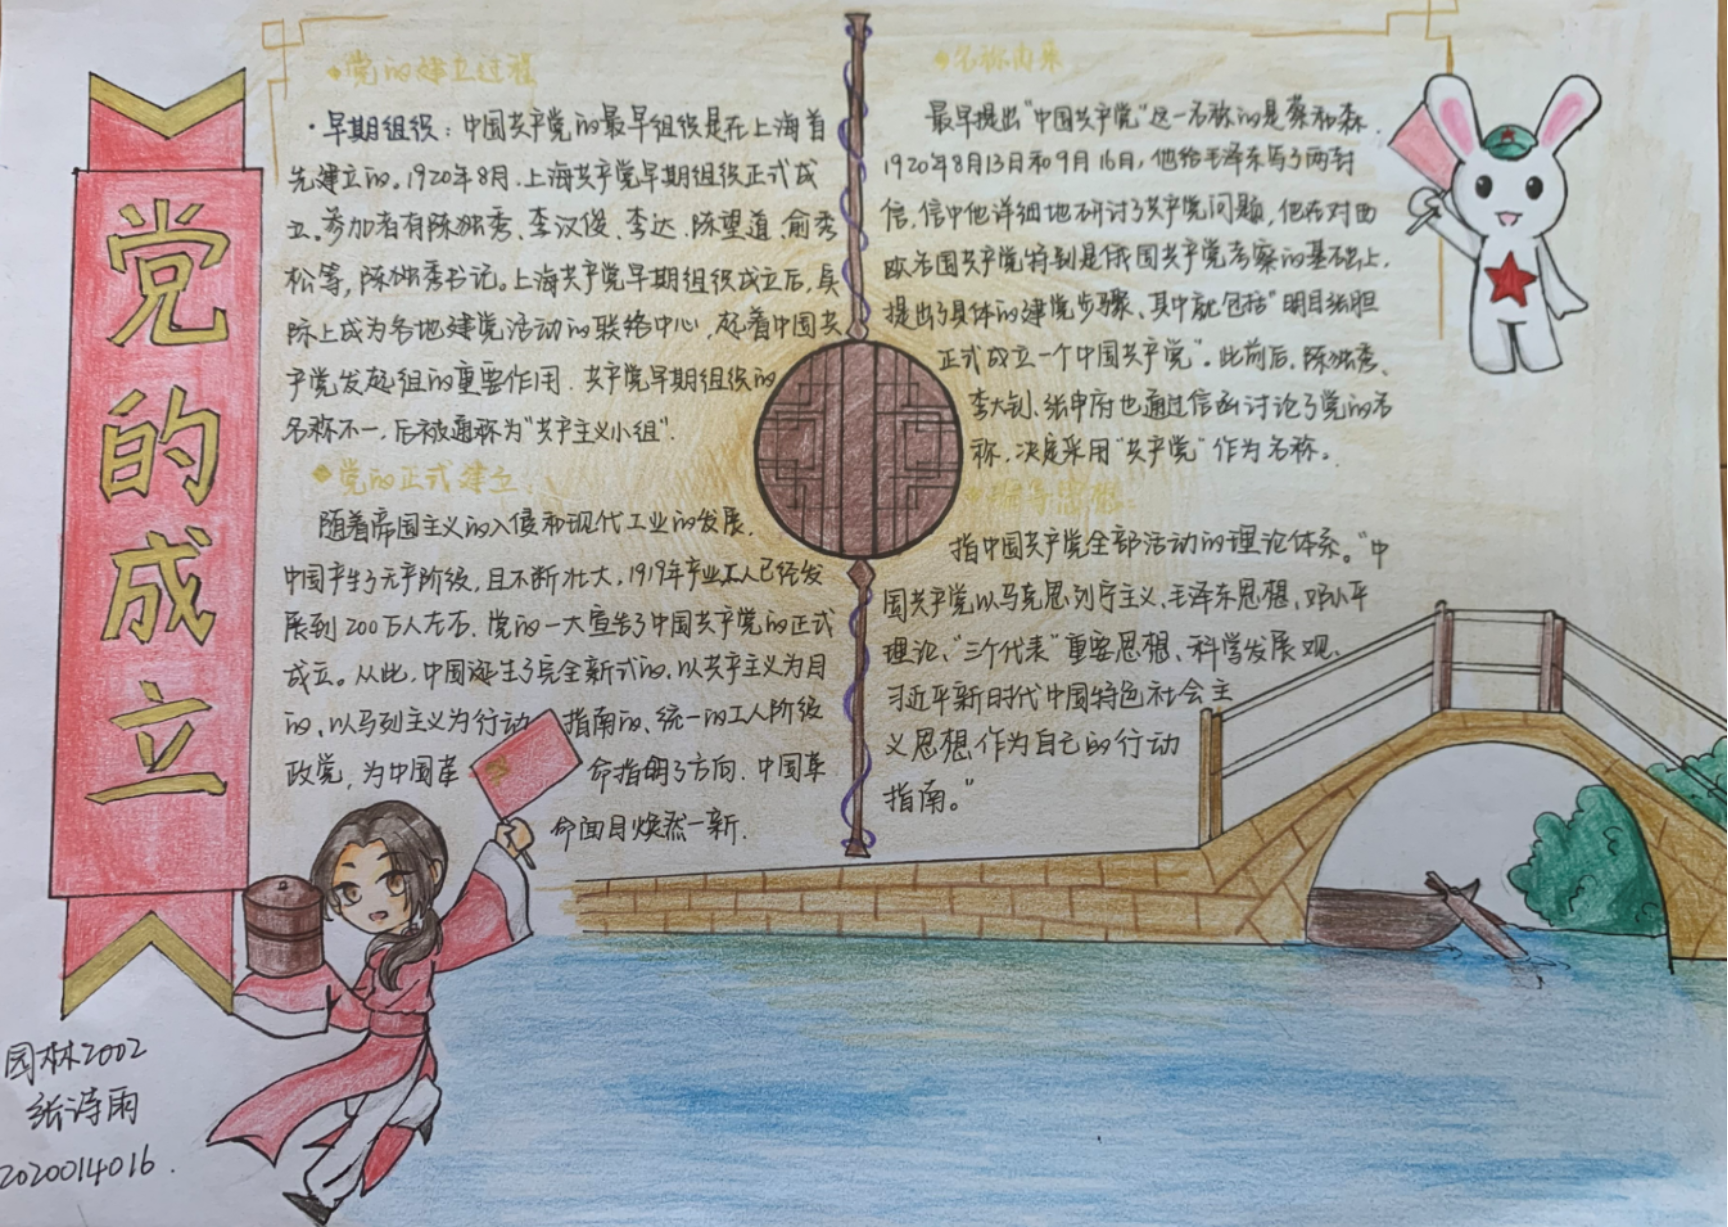 党的成立
◆党的建立过程
·早期组织：中国共产党的最早组织是在上海首
先建立的。1920年8月.上海共产党早期组织正式成
立。参加者有陈独秀、李汉俊、李达.陈望道.俞秀
松等,陈独秀书记。上海共产党早期组织成立后,实
际上成为各地建党活动的联络中心,起着中国共
产党发起组的重要作用.共产党早期组织的
名称不一,后被通称为"共产主义小组".
◆党的正式建立:
随着帝国主义的入侵和现代工业的发展.
中国产生了无产阶级,且不断壮大,1919年产业工人已经发
展到200万人左右.党的一大宣告了中国共产党的正式
成立。从此,中国诞生了完全新式的.以共产主义为目
的、以马列主义为行动指南的、统一的工人阶级
政党,为中国革命指明了方向.中国革
命面目焕然一新.
◆名称由来
最早提出"中国共产党"这一名称的是蔡和森.
1920年8月13日和9月16日,他给毛泽东写了两封
信,信中他详细地研讨了共产党问题,他在对西
欧各国共产党特别是俄国共产党考察的基础上,
提出了具体的建党步骤、其中就包括"明目张胆
正式成立一个中国共产党"。此前后.陈独秀、
李大钊、张申府也通过信函讨论了党的名
称,决定采用"共产党"作为名称。
指导思想:
指中国共产党全部活动的理论体系。"中
国共产党以马克思列宁主义、毛泽东思想、邓小平
理论、"三个代表"重要思想、科学发展观、
习近平新时代中国特色社会主
义思想作为自己的行动
指南。"
园林2002
张诗雨
2020014016.